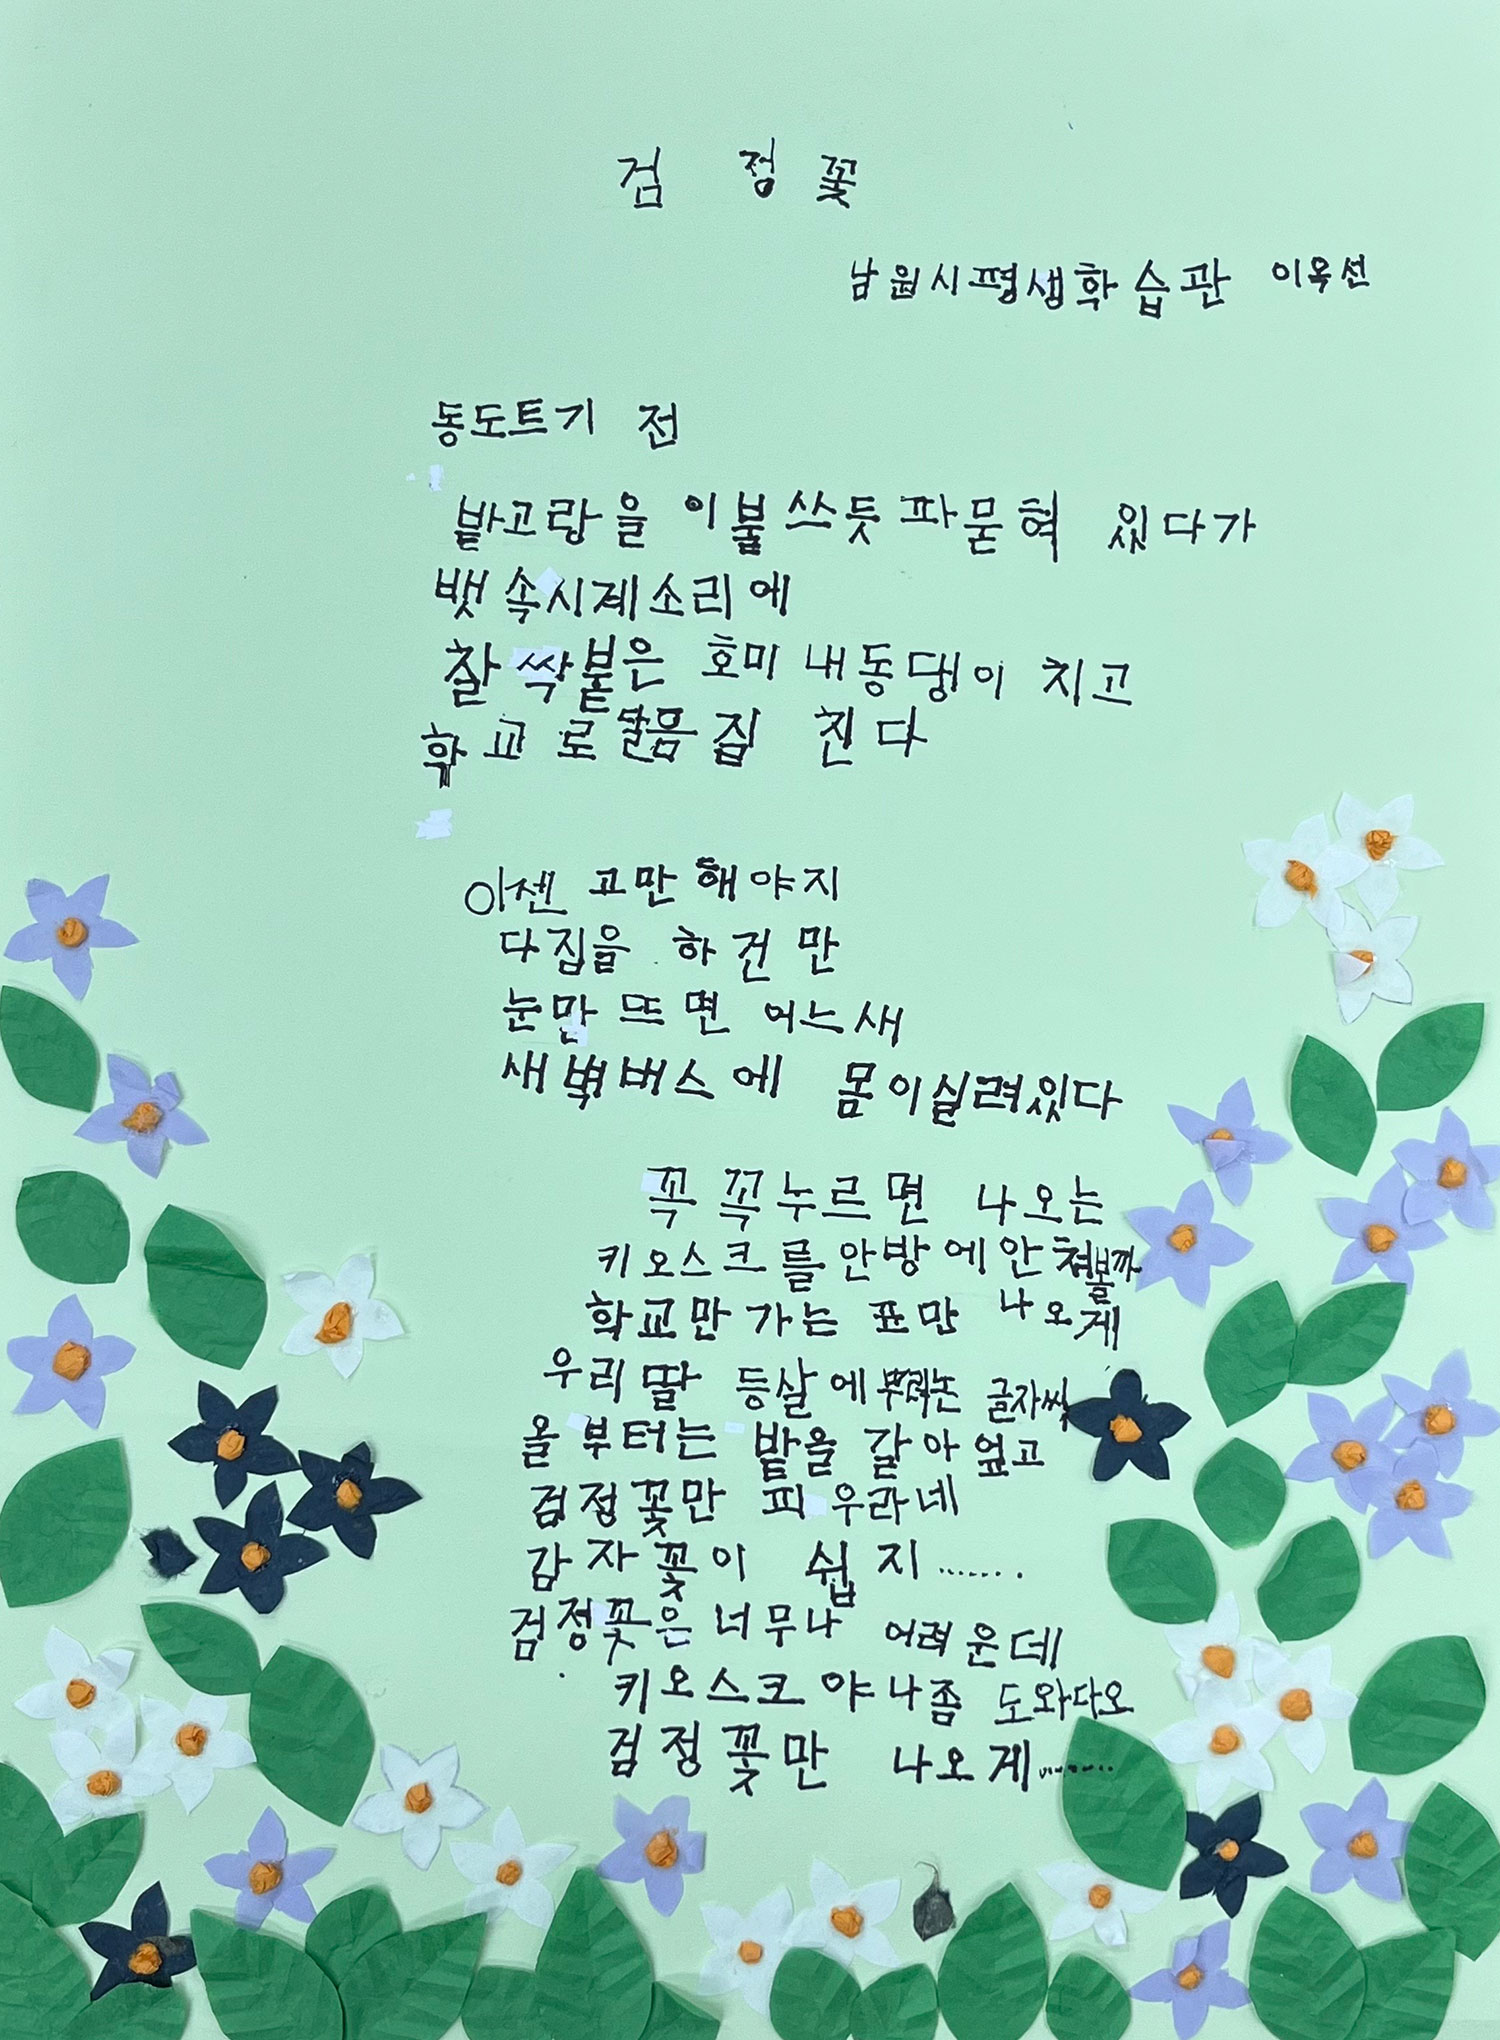 검정꽃
남원시평생학습관 이옥선
동도트기 전
밭고랑을 이불쓰듯 파묻혀 있다가
뱃속시계소리에
찰싹붙은 호미 내동댕이 치고
학교로 달음집 친다
이젠 고만해야지
다짐을 하건만
눈만 뜨면 어느새
새벽버스에 몸이실려있다
꼭꼭누르면 나오는
키오스크를 안방에안쳐볼까
학교만 가는 표만 나오게
우리딸 등살에뿌려논 글자씨
올부터는 밭을 갈아 엎고
검정꽃만 피우라네
감자꽃이 쉽지.......
검정꽃은 너무나 어려운데
키오스크야 나좀 도와다오
검정꽃만 나오게........